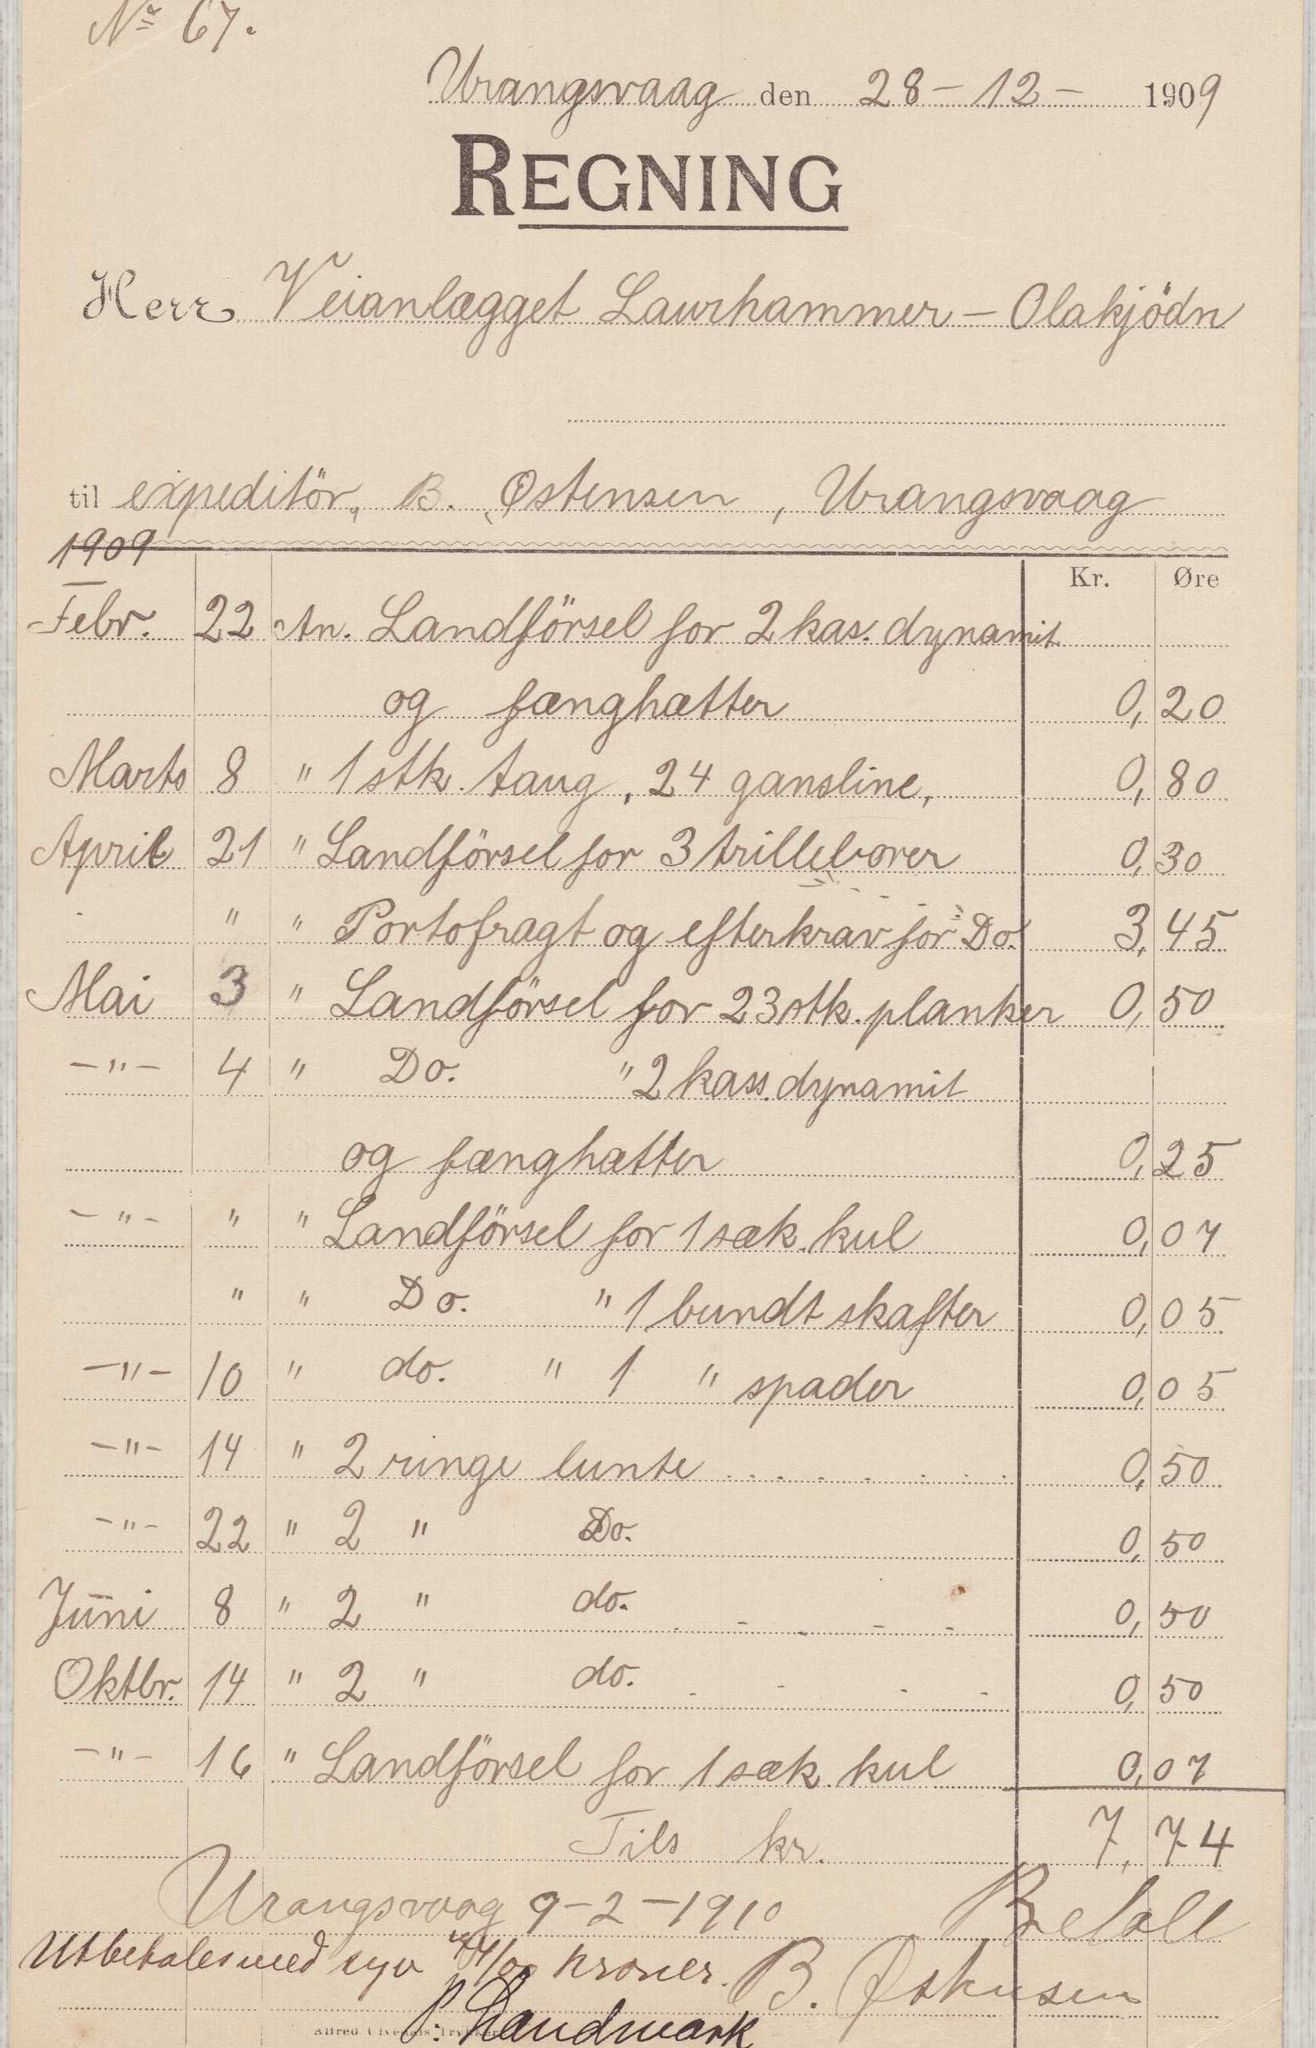 No 67.
Urangsvaag den 28-12- 1909
REGNING
Herr Veianlægget Laurhammer - Olakjödn
til expeditör, B. Østensen, Urangsvaag
1909
Kr. Øre
Febr. 22 An. Landförsel for 2 kas. dynamit
og fænghætter 0,20
Marts 8 " 1 stk. taug, 24 gansline, 0,80
April 21 " Landförsel for 3 trilleborer 0,30
" " Portofragt og efterkrav for Do. 3,45
Mai 3 " Landförsel for 23 stk. planker 0,50
-"- 4 " Do. " 2 kass. dynamit
og fænghætter 0,25
-"- " " Landförsel for 1 sæk. kul 0,07
" " Do. " 1 bundt skafter 0,05
-"- 10 " do. " 1 " spader 0,05
-"- 14 " 2 ringe lunte 0,50
-"- 22 " 2 " Do. 0,50
Juni 8 " 2 " do. 0,50
Oktbr. 14 " 2 " do. 0,50
-"- 16 " Landförsel for 1 sæk. kul 0,07
Tils kr. 7,74
Urangsvaag 9-2-1910 Betalt
Utbetales med syv 74/00 kroner. B. Østensen
P. Landmark